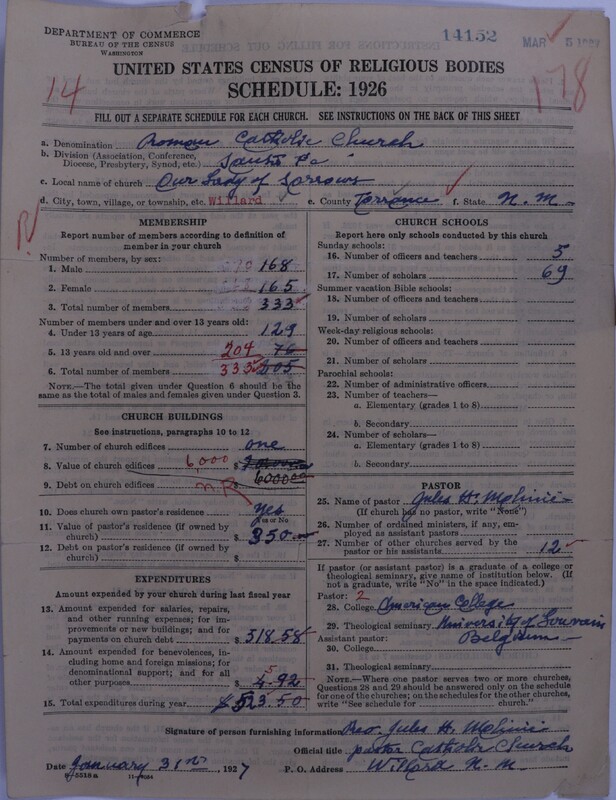 DEPARTMENT OF COMMERCE
BUREAU OF THE CENSUS
WASHINGTON
14152
MAR 5 192
UNITED STATES CENSUS OF RELIGIOUS BODIES
SCHEDULE: 1926
14
178
FILL OUT A SEPARATE SCHEDULE FOR EACH CHURCH. SEE INSTRUCTIONS ON THE BACK OF THIS SHEET
a. Denomination Roman Catholic Church
b. Division (Association, Conference, Diocese, Presbytery, Synod, etc.) Santa Fe
c. Local name of church Our Lady of Sorrows
d. City, town, village, or township, etc. Willard e. County Torrance f. State N. M.
MEMBERSHIP
Report number of members according to definition of
member in your church
Number of members, by sex:
1. Male 168
2. Female 165
3. Total number of members 333
Number of members under and over 13 years old:
4. Under 13 years of age 129
5. 13 years old and over 204 76
6. Total number of members 333 205
NOTE.—The total given under Question 6 should be the
same as the total of males and females given under Question 3.
CHURCH BUILDINGS
See instructions, paragraphs 10 to 12
7. Number of church edifices one
8. Value of church edifices 6000 $
600000
9. Debt on church edifices n.R
10. Does church own pastor's residence yes
Yes or No
11. Value of pastor's residence (if owned by
church) $ 350
12. Debt on pastor's residence (if owned by
church) $
EXPENDITURES
Amount expended by your church during last fiscal year
13. Amount expended for salaries, repairs,
and other running expenses; for improvements or new buildings; and for
payments on church debt $ 518.58
14. Amount expended for benevolences,
including home and foreign missions; for
denominational support; and for all
other purposes $ 4.92
5
15. Total expenditures during year $ 523.50
CHURCH SCHOOLS
Report here only schools conducted by this church
Sunday schools:
16. Number of officers and teachers 5
17. Number of scholars 69
Summer vacation Bible schools:
18. Number of officers and teachers
19. Number of scholars
Week-day religious schools:
20. Number of officers and teachers
21. Number of scholars
Parochial schools:
22. Number of administrative officers
23. Number of teachers—
a. Elementary (grades 1 to 8)
b. Secondary
24. Number of scholars—
a. Elementary (grades 1 to 8)
b. Secondary
PASTOR
25. Name of pastor Jules H. Molinie
(If church has no pastor, write "None")
26. Number of ordained ministers, if any, employed as assistant pastors
27. Number of other churches served by the
pastor or his assistants 12
If pastor (or assistant pastor) is a graduate of a college or
theological seminary, give name of institution below. (If
not a graduate, write "No" in the space indicated.)
Pastor: 2
28. College American College
29. Theological seminary University of Louvain
Assistant pastor: Belgium
30. College
31. Theological seminary
NOTE.—Where one pastor serves two or more churches,
Questions 28 and 29 should be answered only on the schedule
for one of the churches; on the schedules for the other churches,
write "See schedule for church."
Signature of person furnishing information Rev. Jules H. Molinie
Official title pastor Catholic Church
Date January 31st, 1927 P. O. Address Willard N. M.